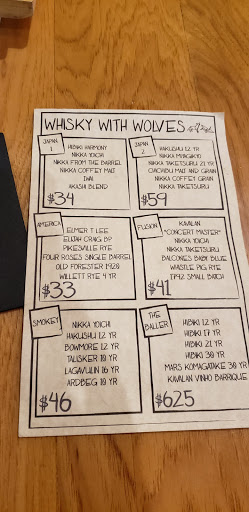 WHISKY WITH WOLVES
JAPAN 1
HIBIKI HARMONY
NIKKA YOICHI
NIKKA FROM THE BARREL
NIKKA COFFEY MALT
IWAI
AKASHI BLEND
$34
JAPAN 2
HAKUSHU 12 YR
NIKKA MIYAGIKYO
NIKKA TAKETSURU 21 YR
CHICHIBU MALT AND GRAIN
NIKKA COFFEY GRAIN
NIKKA TAKETSURU
$59
AMERICA
ELMER T LEE
ELIJAH CRAIG BP
PIKESVILLE RYE
FOUR ROSES SINGLE BARREL
OLD FORESTER 1920
WILLETT RYE 4 YR
$33
FUSION
KAVALAN
"CONCERT MASTER"
NIKKA YOICHI
NIKKA TAKETSURU
BALCONES BABY BLUE
WHISTLE PIG RYE
1792 SMALL BATCH
$41
SMOKEY
NIKKA YOICHI
HAKUSHU 12 YR
BOWMORE 12 YR
TALISKER 10 YR
LAGAVULIN 16 YR
ARDBEG 10 YR
$46
THE BALLER
HIBIKI 12 YR
HIBIKI 17 YR
HIBIKI 21 YR
HIBIKI 30 YR
MARS KOMAGATAKE 30 YR
KAVALAN VINHO BARRIQUE
$625